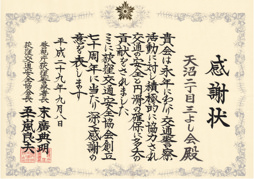 感謝状
天沼二丁目三よし会殿
貴会は永年にわたり交通警察
活動に対し積極的に協力され
交通の安全と円滑の確保に多大な
貢献をされました
ここに荻窪交通安全協会創立
七十周年に当たり深く感謝の
意を表します
平成二十九年九月八日
警視庁荻窪警察署長 末廣典明
荻窪交通安全協会会長 五十嵐良次